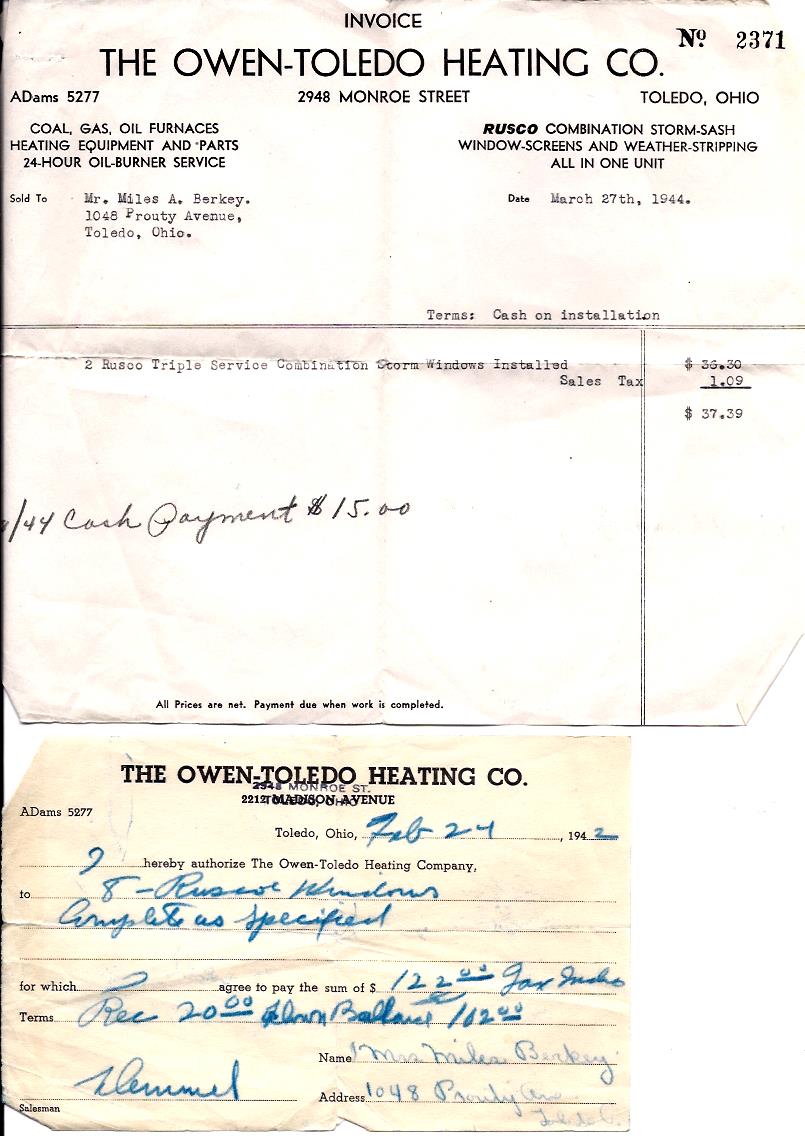 INVOICE
Nº 2371
THE OWEN-TOLEDO HEATING CO.
ADams 5277 2948 MONROE STREET TOLEDO, OHIO
COAL, GAS, OIL FURNACES
HEATING EQUIPMENT AND PARTS
24-HOUR OIL-BURNER SERVICE
RUSCO COMBINATION STORM-SASH
WINDOW-SCREENS AND WEATHER-STRIPPING
ALL IN ONE UNIT
Sold To Mr. Miles A. Berkey.
1048 Prouty Avenue,
Toledo, Ohio.
Date March 27th, 1944.
Terms: Cash on installation
2 Rusco Triple Service Combination Storm Windows Installed $ 36.30
Sales Tax 1.09
$ 37.39
/44 Cash Payment $15.00
All Prices are net. Payment due when work is completed.
THE OWEN-TOLEDO HEATING CO.
2948 MONROE ST.
2212 MADISON AVENUE
TOLEDO, OHIO
ADams 5277
Toledo, Ohio, Feb 24, 1942
I hereby authorize The Owen-Toledo Heating Company,
to 8 - Ruscoe Windows
Complete as specified
for which I agree to pay the sum of $ 122.00 Tax
Terms Rec 20.00 down Ballance 102.00
Name Mrs Miles Berkey
Address 1048 Prouty Ave
Toledo O.
Salesman